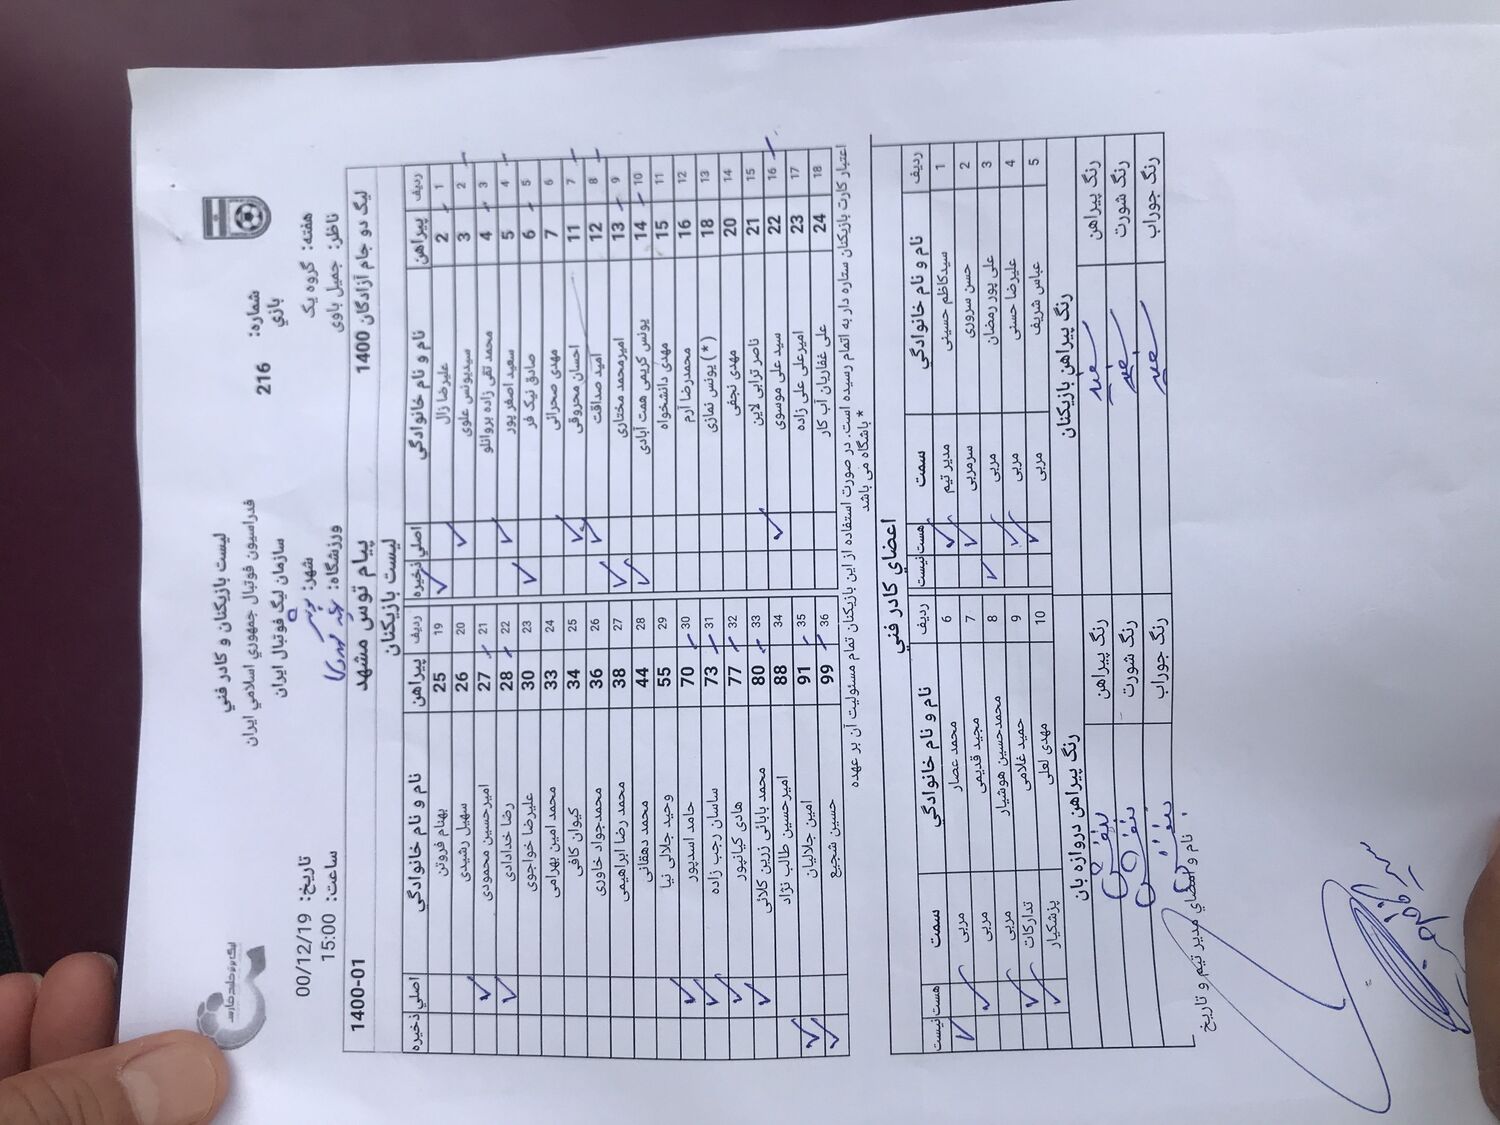 لیست بازیکنان و کادر فني
فدراسیون فوتبال جمهوري اسلامي ایران
سازمان لیگ فوتبال ایران
شماره بازي: 216
تاریخ: 00/12/19
ساعت: 15:00
هفته: گروه یک
ناظر: جمیل باوی
شهر:
ورزشگاه:
لیگ دو جام آزادگان 1400
پیام توس مشهد
1400-01
لیست بازیکنان
ردیف پیراهن نام و نام خانوادگي اصلي ذخیره ردیف پیراهن نام و نام خانوادگي اصلي ذخیره
1 2 علیرضا زال 19 25 بهنام فروتن
2 3 سیدیونس علوی 20 26 سهیل رشیدی
3 4 محمد تقی زاده بروانلو 21 27 امیرحسین محمودی
4 5 سعید اصغر پور 22 28 رضا خدادادی
5 6 صادق نیک فر 23 30 علیرضا خواجوی
6 7 مهدی صحرائی 24 33 محمد امین بهرامی
7 11 احسان محروقی 25 34 کیوان کافی
8 12 امید صداقت 26 36 محمدجواد خاوری
9 13 امیرمحمد مختاری 27 38 محمد رضا ابراهیمی
10 14 یونس کریمی همت آبادی 28 44 محمد دهقانی
11 15 مهدی دانشخواه 29 55 وحید جلالی نیا
12 16 محمدرضا آرم 30 70 حامد اسدپور
13 18 (*) یونس نمازی 31 73 ساسان رجب زاده
14 20 مهدی نجفی 32 77 هادی کیانپور
15 21 ناصر ترابی لاین 33 80 محمد بابائی زرین کلائی
16 22 سید علی موسوی 34 88 امیرحسین طالب نژاد
17 23 امیرعلی علی زاده 35 91 امین جلالیان
18 24 علی غفاریان آب کار 36 99 حسین شجیع
اعتبار کارت بازیکنان ستاره دار به اتمام رسیده است. در صورت استفاده از این بازیکنان تمام مسئولیت آن بر عهده
* باشگاه می باشد
اعضاي کادر فني
ردیف نام و نام خانوادگي سمت هست نیست ردیف نام و نام خانوادگي سمت هست نیست
1 سیدکاظم حسینی مدیر تیم 6 محمد عصار مربی
2 حسن سروری سرمربی 7 مجید قدیمی مربی
3 علی پور رمضان مربی 8 محمدحسین هوشیار مربی
4 علیرضا حسنی مربی 9 حمید غلامی تدارکات
5 عباس شریف مربی 10 مهدی لعلی پزشکیار
رنگ پیراهن بازیکنان رنگ پیراهن دروازه بان
رنگ پیراهن سفید رنگ پیراهن بنفش
رنگ شورت سفید رنگ شورت بنفش
رنگ جوراب سفید رنگ جوراب بنفش
نام و امضاي مدیر تیم و تاریخ